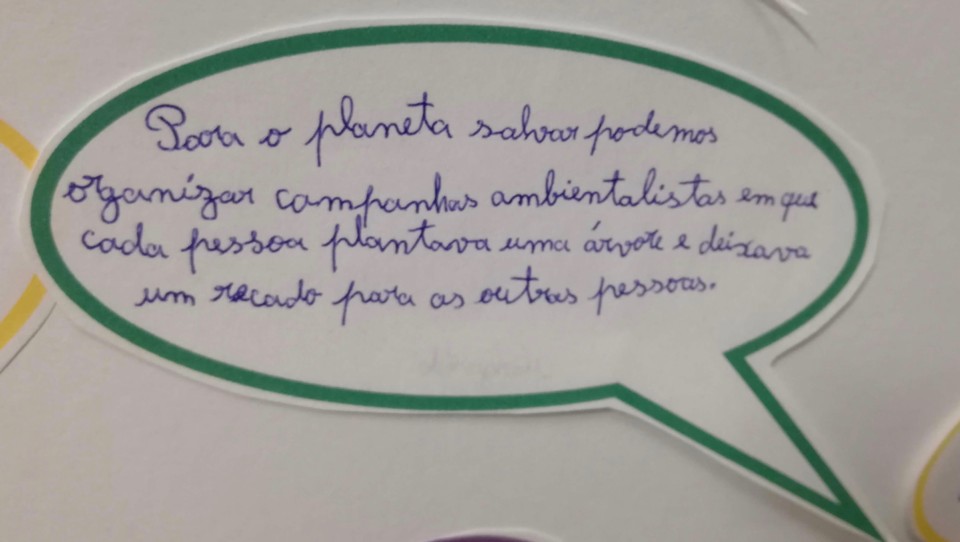 Para o planeta salvar podemos
organizar campanhas ambientalistas em que
cada pessoa plantava uma árvore e deixava
um recado para as outras pessoas.